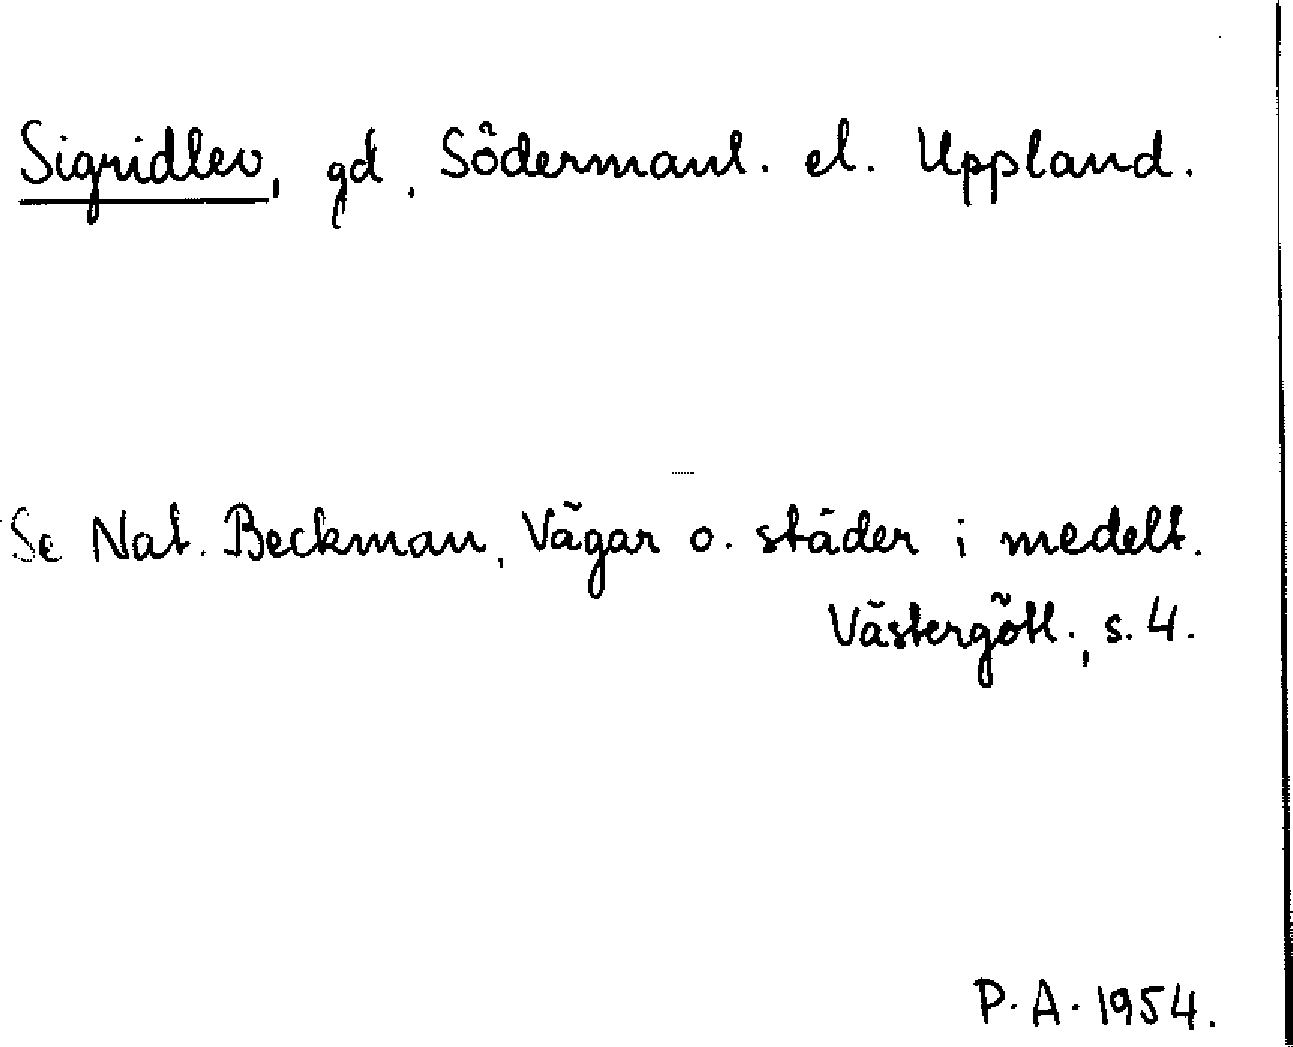 Sigridlev, gd, Södermanl. el. Uppland.
Se Nat. Beckman, Vägar o. städer i medelt.
Västergötl., s. 4.
P. A. 1954.